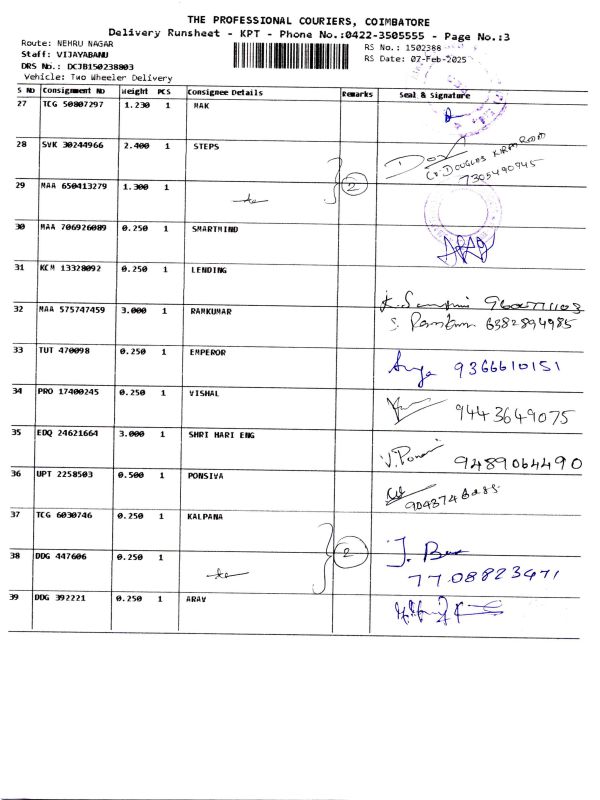 THE PROFESSIONAL COURIERS, COIMBATORE
Delivery Runsheet - KPT - Phone No.:0422-3505555 - Page No.:3
Route: NEHRU NAGAR
RS No.: 1502388
Staff: VIJAYABANU
RS Date: 07-Feb-2025
DRS No.: DCJB150238803
Vehicle: Two Wheeler Delivery
S No Consignment No Weight PCS Consignee Details Remarks Seal & Signature
27 TCG 50807297 1.230 1 MAK
28 SVK 30244966 2.400 1 STEPS
DOUGLAS
7305490945
29 MAA 650413279 1.300 1 2
30 MAA 706926089 0.250 1 SMARTMIND
31 KCM 13328092 0.250 1 LENDING
32 MAA 575747459 3.000 1 RAMKUMAR
6382894985
33 TUT 470098 0.250 1 EMPEROR
9366610151
34 PRO 17400245 0.250 1 VISHAL
9443649075
35 EDQ 24621664 3.000 1 SHRI HARI ENG
9489064490
36 UPT 2258503 0.500 1 PONSIVA
37 TCG 6030746 0.250 1 KALPANA
38 DDG 447606 0.250 1 2
7708823471
39 DDG 392221 0.250 1 ARAV